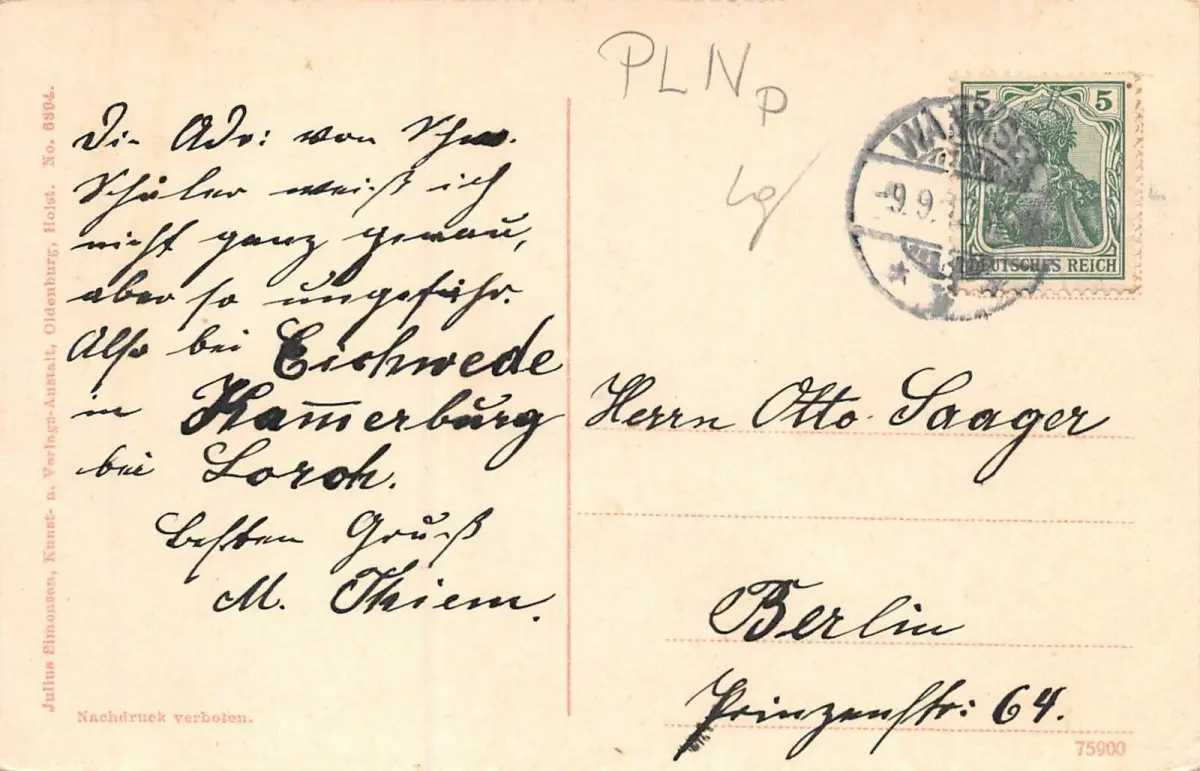 Die Adr: von Schw.
Schüler weiß ich
nicht ganz genau,
aber so ungefähr.
Also bei Eichwede
in Kam̅erburg
bei Lorch.
Besten Gruß
M. Thiem.
PLNp
5 5
DEUTSCHES REICH
9.9.
Herrn Otto Saager
Berlin
Prinzenstr: 64.
75900
Nachdruck verboten.
Julius Simonsen, Kunst- u. Verlags-Anstalt, Oldenburg, Holst. No. 6804.